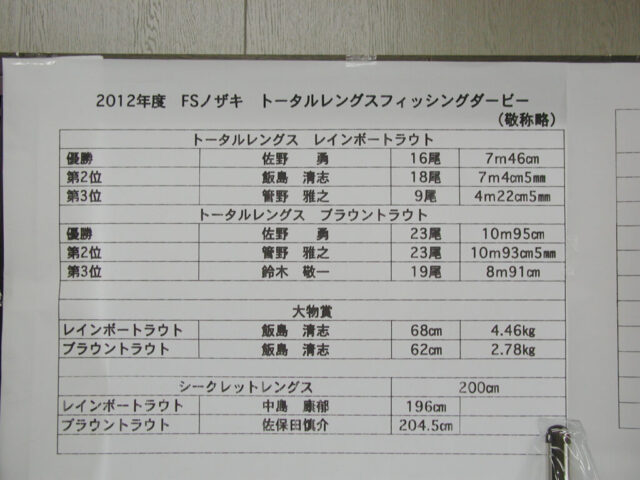 2012年度 FSノザキ トータルレングスフィッシングダービー
(敬称略)
トータルレングス レインボートラウト
優勝 佐野 勇 16尾 7m46cm
第2位 飯島 清志 18尾 7m4cm5mm
第3位 管野 雅之 9尾 4m22cm5mm
トータルレングス ブラウントラウト
優勝 佐野 勇 23尾 10m95cm
第2位 管野 雅之 23尾 10m93cm5mm
第3位 鈴木 敬一 19尾 8m91cm
大物賞
レインボートラウト 飯島 清志 68cm 4.46kg
ブラウントラウト 飯島 清志 62cm 2.78kg
シークレットレングス 200cm
レインボートラウト 中島 康郁 196cm
ブラウントラウト 佐保田慎介 204.5cm